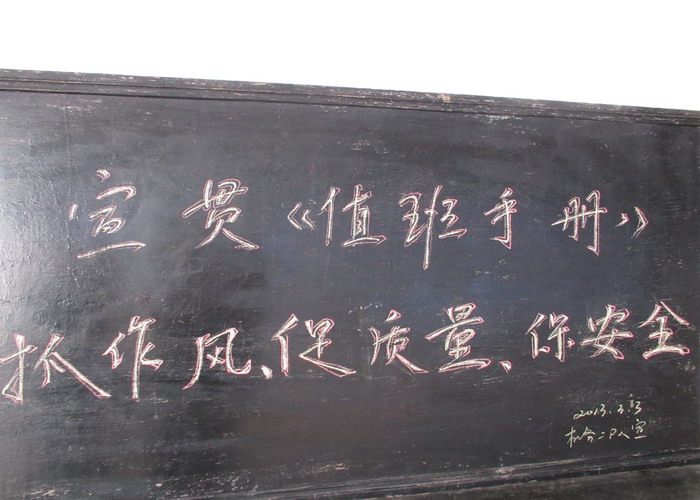 宣贯《值班手册》
抓作风、促质量、保安全
2013.3
二队宣